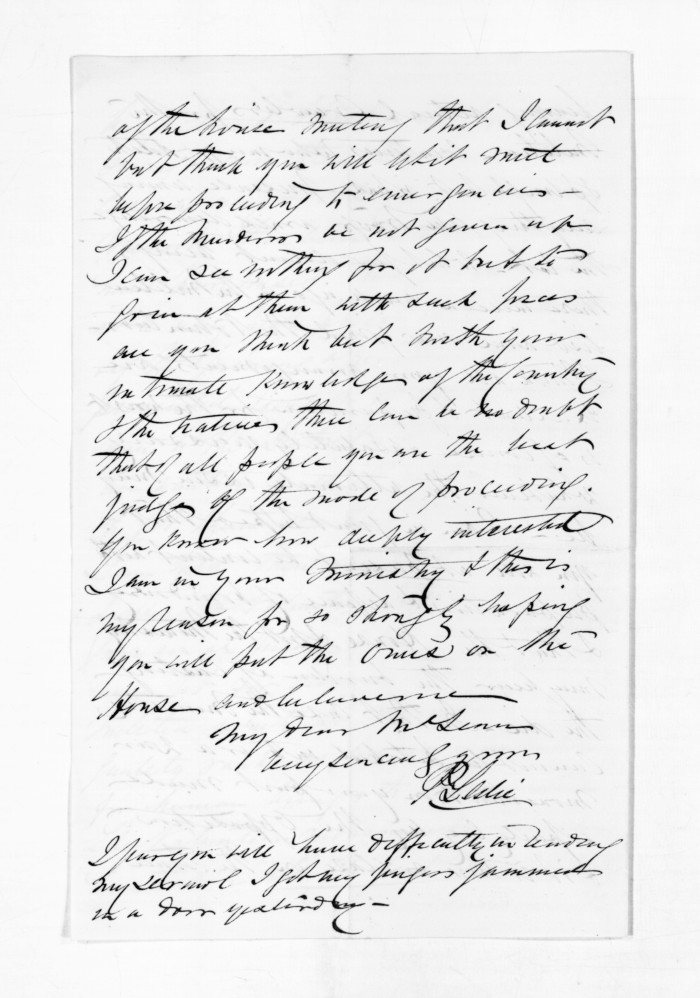 of the house meeting that I cannot
but think you will let it meet
before proceeding to emergencies –
If the Murderers be not given up
I can see nothing for it but to
goin at them with such forces
as you think best with your
intimate knowledge of the Country
& the Natives there can be no doubt
that of all people you are the best
judge of the mode of proceeding.
You know how deeply interested
I am in your Ministry & this is
my reason for so strongly hoping
you will put the Onus on the
House and believe me
My dear McLean
very sincerely yours
P Leslie
I fear you will have difficulty in reading
my scrawl I got my fingers jammed
in a door yesterday –